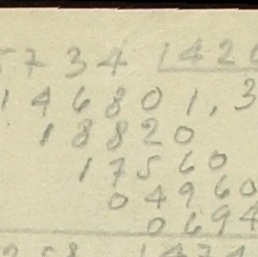 5734 1420
146801,3
18820
17560
04960
0694